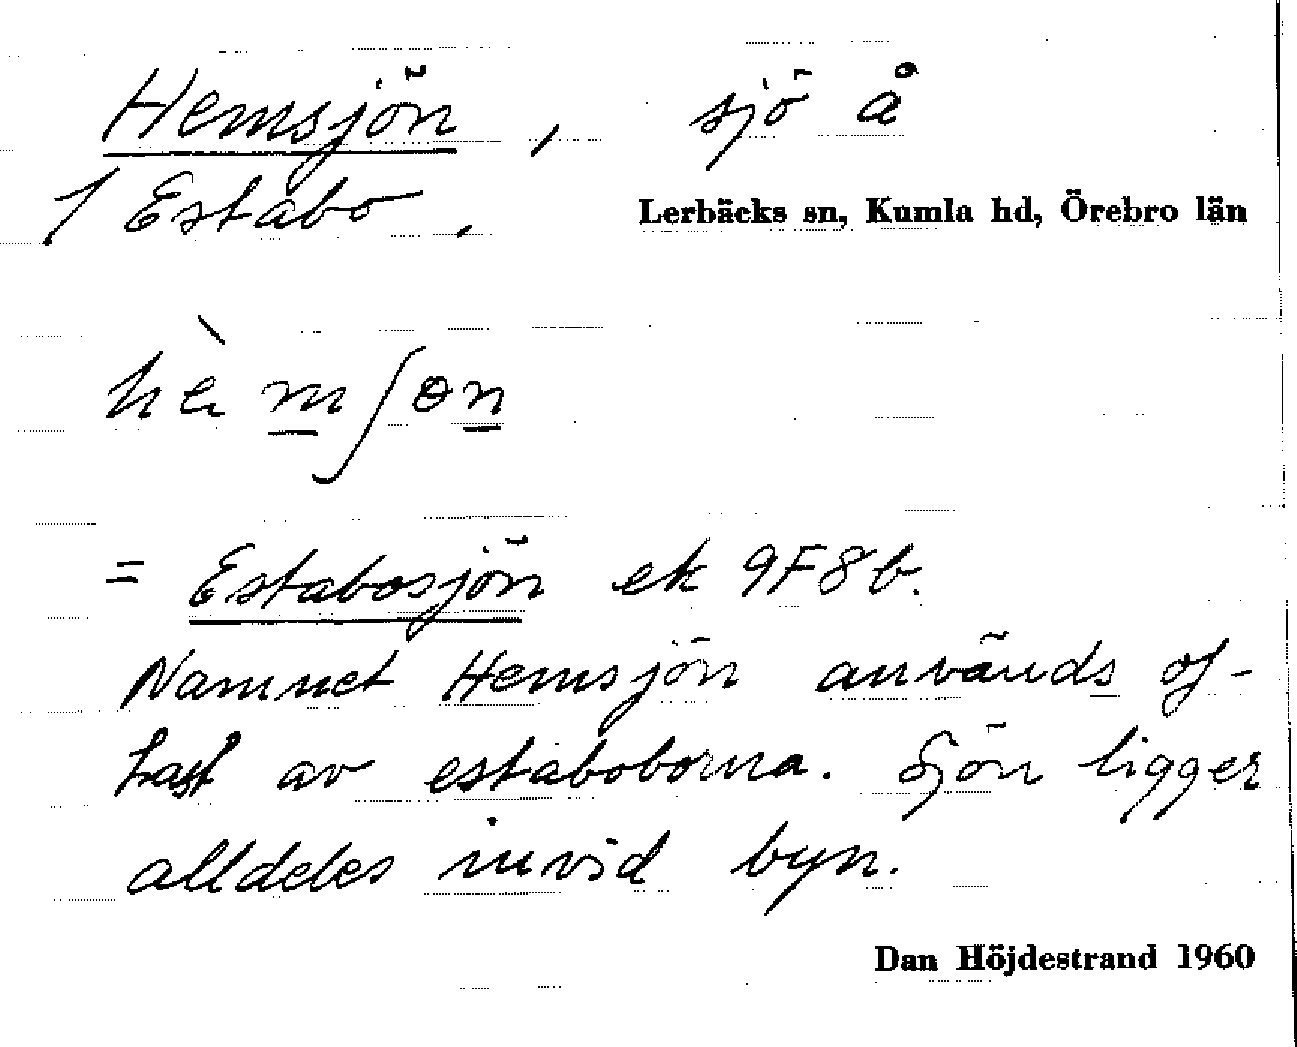 Hemsjön, sjö å
1 Estabo, Lerbäcks sn, Kumla hd, Örebro län
hèmʃɵn
= Estabosjön ek 9F8b.
Namnet Hemsjön används of-
tast av estaboborna. Sjön ligger
alldeles invid byn.
Dan Höjdestrand 1960